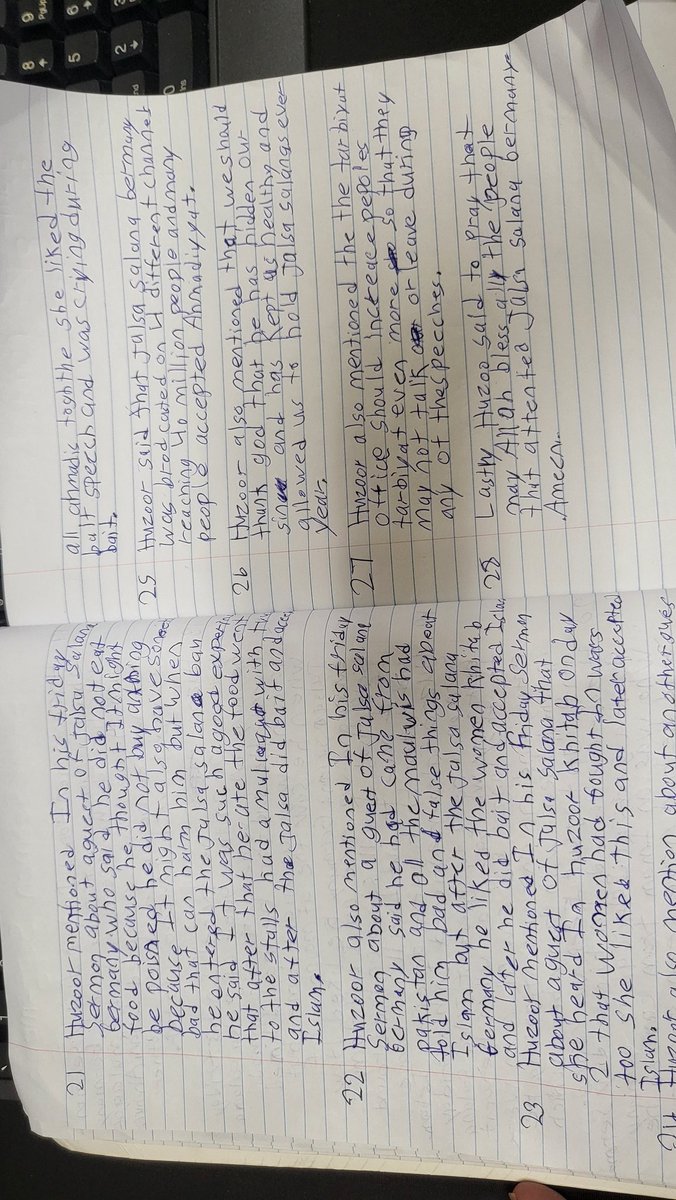 21 Huzoor mentioned In his friday
Sermon about aguest of Jalsa Salana
Germany who said he did not eat
food because he thought It might
be poisned he did not buy anything
because It might also have some
bad that can harm him but when
he entered the Jalsa salana ban
he said It was such agood experi
that after that he ate the food went
to the stalls had a with
and after the Jalsa did bait and acc
Islam.
22 Huzoor also mentioned In his friday
Sermon about a guest of Jalsa salana
Germany said he had came from
pakistan and all the maulwis had
told him bad and false things about
Islam but after the Jalsa salana
Germany he liked the women khitab
and later he did bait and accepted Islam
23 Huzoor mentioned In his Friday Sermon
about aguest of Jalsa Salana that
she heard In huzoor khitab on day
2 that women had fought In wars
too she liked this and later accepted
Islam.
24 Huzoor also mention about another gues
all ahmadis togthe she liked the
bait speech and was crying during
bait.
25 Huzoor said that Jalsa salana Germany
was brodcated on 4 different channel
reaching 40 million people and many
people accepted Ahmadiyyat.
26 Huzoor also mentioned that we should
thank god that he has hidden our
sins and has kept us healthy and
allowed us to hold Jalsa salanas ever
year.
27 Huzoor also mentioned the the tarbiyat
office should increace pepoles
tarbiyat even more so that they
may not talk or leave during
any of the speeches.
28 Lastly Huzoo said to pray that
may Allah bless all the people
that attented Jalsa salana Germany
Ameen.
9
6
3
8
5
2
0